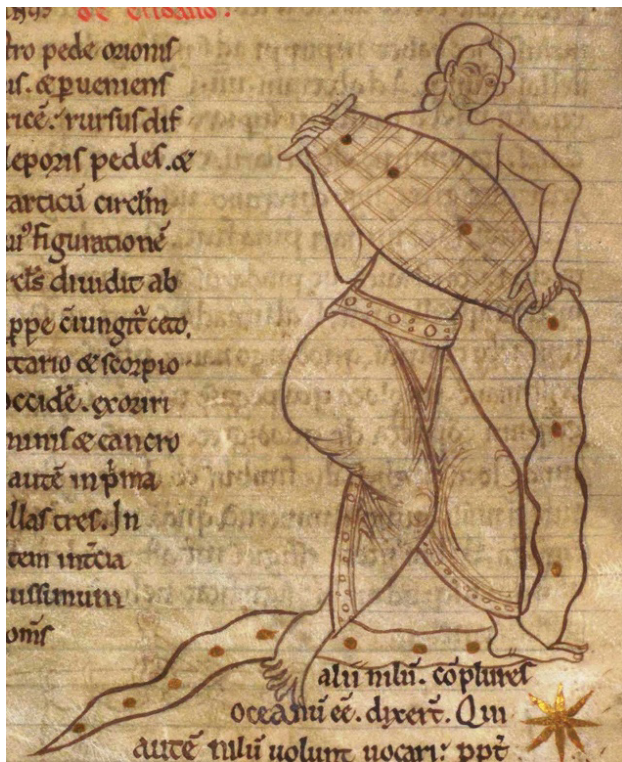 de eridano:
tro pede orionis
is. & pueniens
rice. rursus dif
leporis pedes. &
tarticū circlm
figuratione
diuidit ab
ppe c̄iungit̄ ceto.
ttario & scorpio
occidē. exoriri
minis & cancro
autē in p̄ma
llas tres. In
tem
uissimum
onis
alii nilū. cōplures
oceanū eē. dixer̄t. Qui
autē nilū uolunt uocari: ppt̄